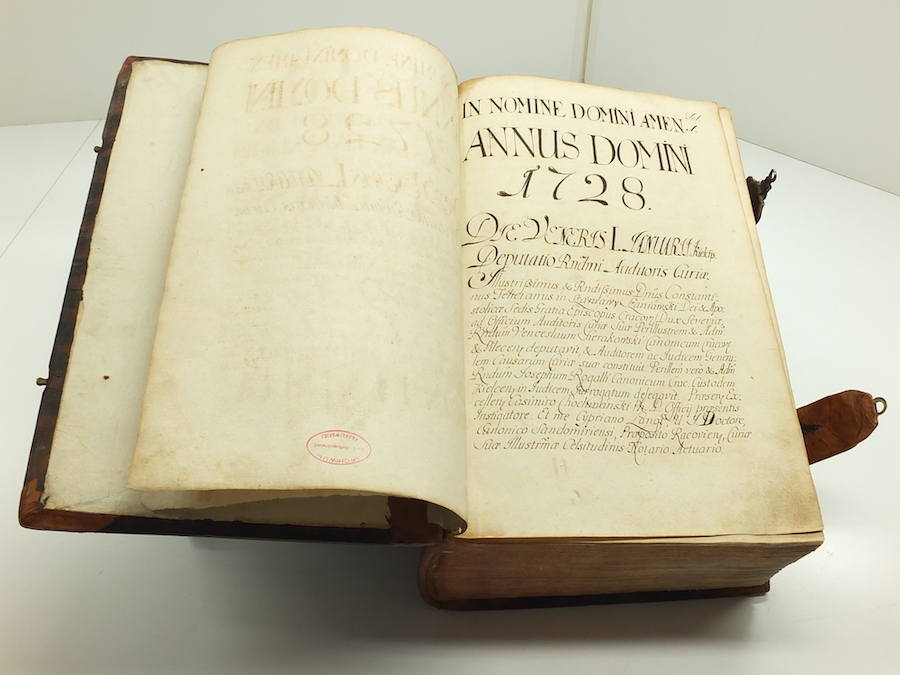 IN NOMINE DOMINI AMEN.
ANNUS DOMINI
1728.
DIE VENERIS I. IANUARII
Deputatio Rndmi Auditoris Curiæ
Illustrissimus & Rndissimus Dnus Constanti-
nus Felicianus in Szaniawy Szaniawski Dei & Apo-
stolicæ Sedis Gratia Episcopus Cracov: Dux Severiæ,
ad Officium Auditoris Curiæ Suæ Perillustrem & Adm
Rndum Venceslaum Sierakowski Canonicum Cracov
& Kielcen, deputavit, & Auditorem ac Judicem Genera-
lem Causarum Curiæ suæ constituit. Perillem vero & Adm
Rndum Josephum Rogalli Canonicum Crac. Custodem
Kielcen, in Judicem Surrogatum delegavit. Præsen, Ex-
cellen, Casimiro Officij præsentis
Instigatore. Et me Cypriano Doctore,
Canonico Sandomiriensi, Præposito Racovien, Curiæ
Suæ Illustrmæ Celsitudinis Notario Actuario.